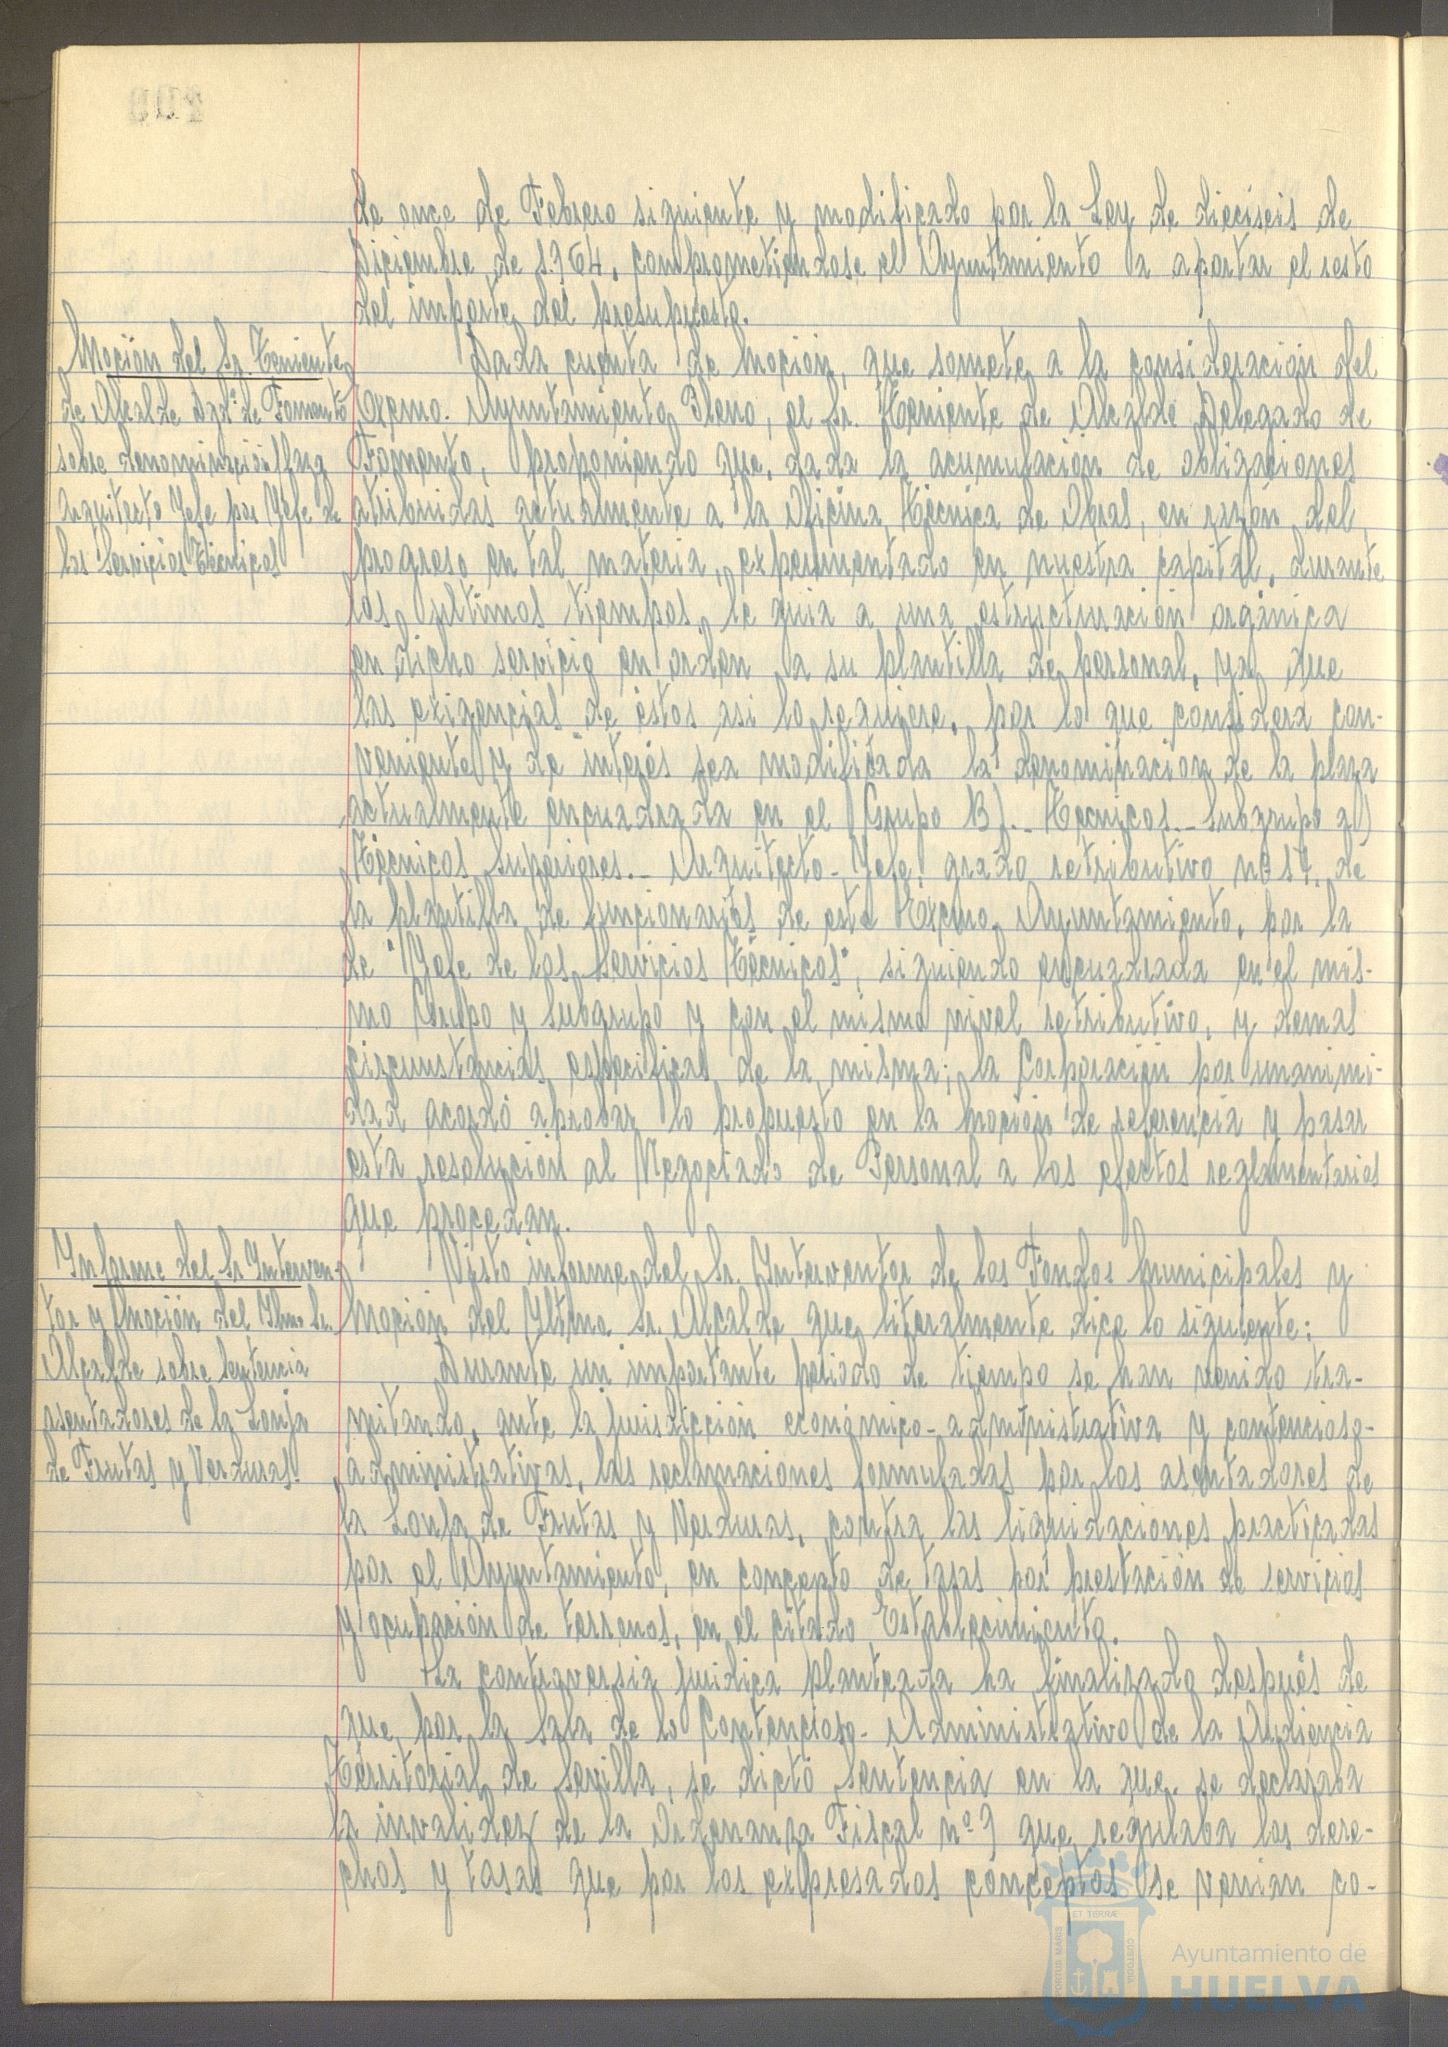 de once de Febrero siguiente y modificado por la Ley de dieciseis de
Diciembre de 1.964, comprometiendose el Ayuntamiento a aportar el resto
del importe del presupuesto.
Moción del Sr. Teniente
de Alcalde Dgdº de Fomento
sobre denominación plaza
Arquitecto Jefe por Jefe de
los Servicios Técnicos
Dada cuenta de Moción, que somete a la consideración del
Excmo. Ayuntamiento Pleno, el Sr. Teniente de Alcalde Delegado de
Fomento, proponiendo que, dada la acumulación de obligaciones
atribuidas actualmente a la Oficina Técnica de Obras, en razón del
progreso en tal materia, experimentado en nuestra capital, durante
los ultimos tiempos, se guia a una estructuración orgánica
en dicho servicio en orden a su plantilla de personal, ya que
las exigencias de éstos asi lo requiere, por lo que considera con-
veniente y de interés sea modificada la denominacion de la plaza
actualmente encuadrada en el Grupo B).- Técnicos.- Subgrupo a)
Técnicos Superiores.- Arquitecto-Jefe, grado retributivo nº 17, de
la plantilla de funcionarios de este Excmo. Ayuntamiento, por la
de "Jefe de los Servicios Técnicos", siguiendo encuadrada en el mis-
mo Grupo y Subgrupo y con el mismo nivel retributivo, y demas
circunstancias especificas de la misma; la Corporación por unanimi-
dad acordó aprobar lo propuesto en la Moción de referencia y pasar
esta resolución al Negociado de Personal a los efectos reglamentarios
que procedan.
Informe del Sr Interven-
tor y Moción del Iltmo Sr.
Alcalde sobre Sentencia
asentadores de la Lonja
de Frutas y Verduras.
Visto informe del Sr. Interventor de los Fondos Municipales y
Moción del Iltmo. Sr. Alcalde que literalmente dice lo siguiente:
Durante un importante periodo de tiempo se han venido tra-
mitando, ante la jurisdicción económico-administrativa y contencioso-
administrativas, las reclamaciones formuladas por los asentadores de
la Lonja de Frutas y Verduras, contra las liquidaciones practicadas
por el Ayuntamiento, en concepto de tasas por prestación de servicios
y ocupación de terrenos, en el citado Establecimiento.
La controversia juridica planteada ha finalizado después de
que por la Sala de lo Contencioso-Administrativo de la Audiencia
Territorial de Sevilla, se dictó Sentencia en la que se declaraba
la invalidez de la Ordenanza Fiscal nº 9 que regulaba los dere-
chos y tasas que por los expresados conceptos se venian co-
PORTUS MARIS
ET TERRÆ
CUSTODIA
Ayuntamiento de
HUELVA